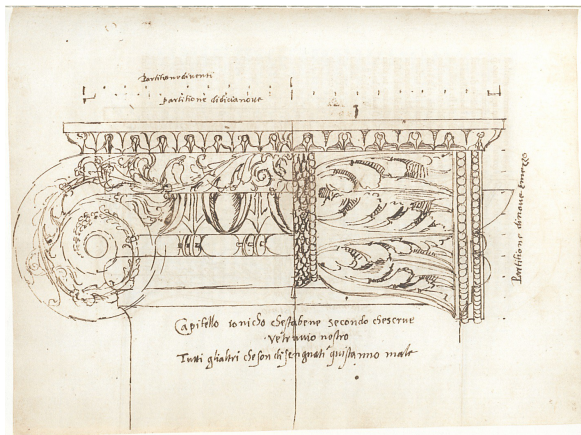 Partitione di venti
partitione didicianove
Partitione dinove emezo
Capitello ionicho chesta bene secondo chescrive
vetruvio nostro
Tutti glialtri che son disengniati quistanno male